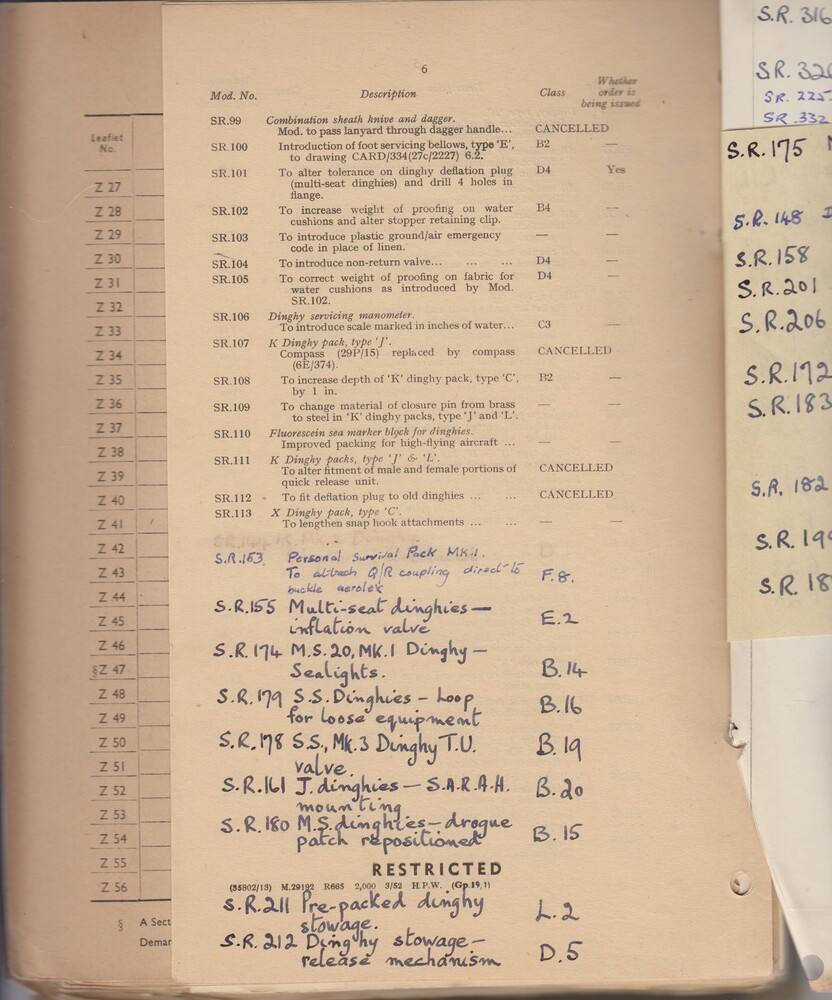 6
Mod. No. Description Class Whether order is being issued
SR.99 Combination sheath knive and dagger.
Mod. to pass lanyard through dagger handle... CANCELLED
SR.100 Introduction of foot servicing bellows, type 'E', B2 —
to drawing CARD/334(27c/2227) 6.2.
SR.101 To alter tolerance on dinghy deflation plug D4 Yes
(multi-seat dinghies) and drill 4 holes in
flange.
SR.102 To increase weight of proofing on water B4 —
cushions and alter stopper retaining clip.
SR.103 To introduce plastic ground/air emergency — —
code in place of linen.
SR.104 To introduce non-return valve... ... ... D4 —
SR.105 To correct weight of proofing on fabric for D4 —
water cushions as introduced by Mod.
SR.102.
SR.106 Dinghy servicing manometer.
To introduce scale marked in inches of water... C3 —
SR.107 K Dinghy pack, type 'J'.
Compass (29P/15) replaced by compass CANCELLED
(6E/374).
SR.108 To increase depth of 'K' dinghy pack, type 'C', B2 —
by 1 in.
SR.109 To change material of closure pin from brass — —
to steel in 'K' dinghy packs, type 'J' and 'L'.
SR.110 Fluorescein sea marker block for dinghies.
Improved packing for high-flying aircraft ... — —
SR.111 K Dinghy packs, type 'J' & 'L'.
To alter fitment of male and female portions of CANCELLED
quick release unit.
SR.112 To fit deflation plug to old dinghies ... ... CANCELLED
SR.113 X Dinghy pack, type 'C'.
To lengthen snap hook attachments ... ... — —
S.R.153. Personal Survival Pack MK.1.
To attach Q/R coupling direct to F.8.
buckle
S.R.155 Multi-seat dinghies — E.2
inflation valve
S.R.174 M.S.20, MK.1 Dinghy —
Sealights. B.14
S.R.179 S.S. Dinghies – Loop B.16
for loose equipment
S.R.178 S.S., MK.3 Dinghy T.U. B.19
valve.
S.R.161 J. dinghies — S.A.R.A.H. B.20
mounting
S.R.180 M.S. dinghies — drogue B.15
patch repositioned
RESTRICTED
(35802/13) M.29192 R665 2,000 3/52 H.P.W. (Gp.19/1)
S.R.211 Pre-packed dinghy L.2
stowage.
S.R.212 Dinghy stowage – D.5
release mechanism
Leaflet
No.
Z 27
Z 28
Z 29
Z 30
Z 31
Z 32
Z 33
Z 34
Z 35
Z 36
Z 37
Z 38
Z 39
Z 40
Z 41
Z 42
Z 43
Z 44
Z 45
Z 46
§Z 47
Z 48
Z 49
Z 50
Z 51
Z 52
Z 53
Z 54
Z 55
Z 56
§ A Sect
Demar
S.R. 316
SR. 326
SR. 225
SR. 332
S.R.175
S.R. 148
S.R.158
S.R.201
S.R.206
S.R.172
S.R.183
S.R. 182
S.R. 19
S.R. 18